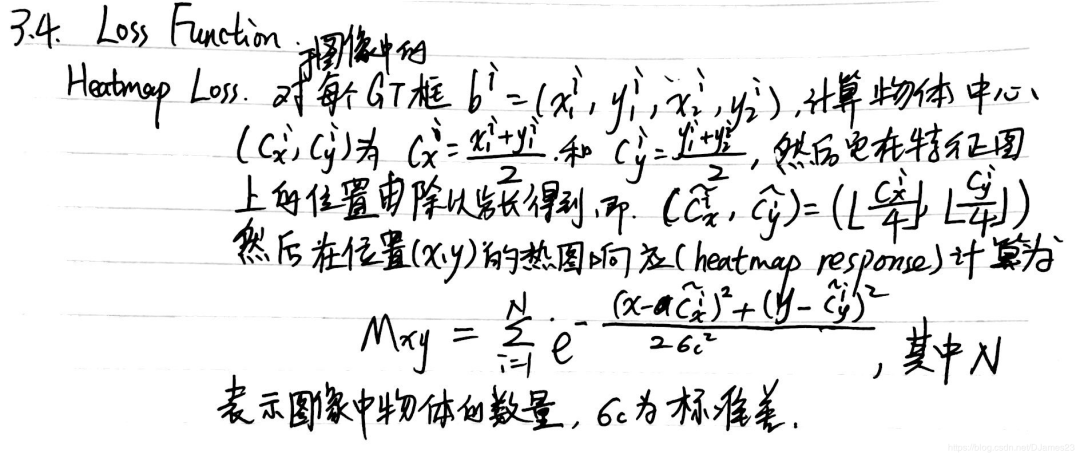 3.4. Loss Function.
Heatmap Loss. 对于图像中的每个GT框 b^i=(x_1^i, y_1^i, x_2^i, y_2^i), 计算物体中心、
(C_x^i, C_y^i)为 C_x^i=\frac{x_1^i+y_1^i}{2}.和 C_y^i=\frac{y_1^i+y_2^i}{2}, 然后它在特征图
上的位置由除以步长得到,即. (\tilde{C_x^i}, \tilde{C_y^i})=(⌊\frac{C_x^i}{4}⌋, ⌊\frac{C_y^i}{4}⌋)
然后在位置(x,y)的热图响应(heatmap response)计算为
M_{xy} = \sum_{i=1}^{N} e^{-\frac{(x-\tilde{C_x^i})^2+(y-\tilde{C_y^i})^2}{2σ_c^2}}, 其中N
表示图像中物体的数量, σ_c为标准差.